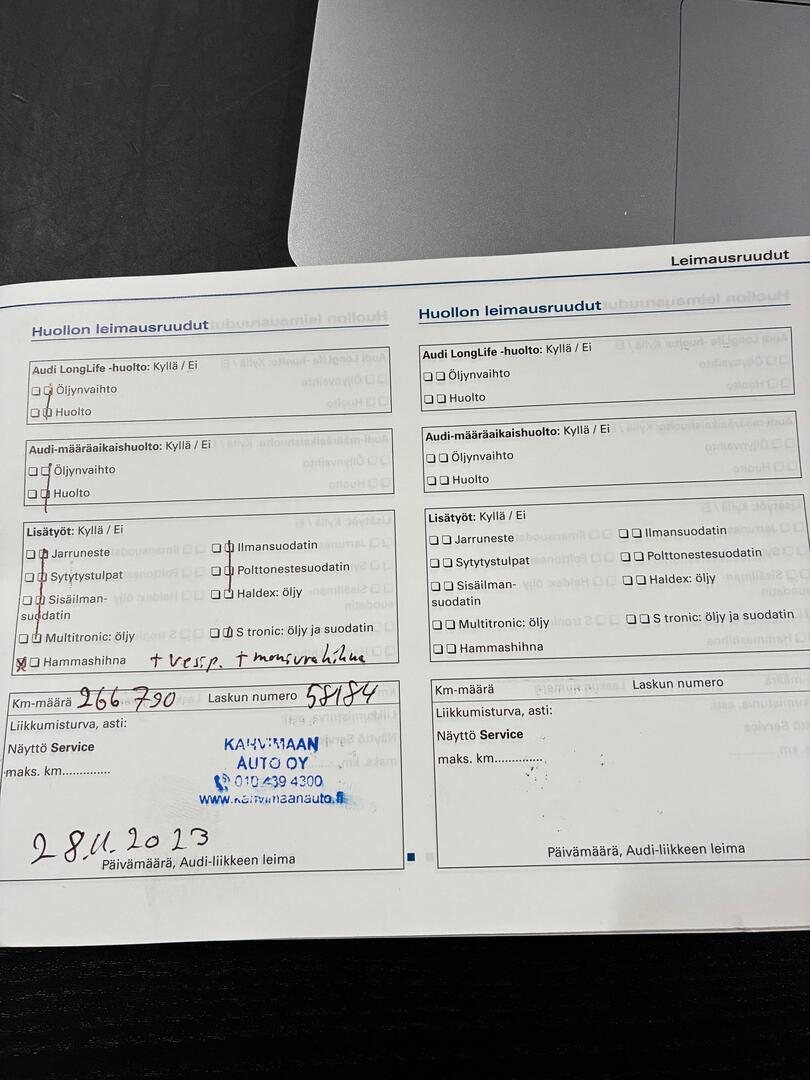 Leimausruudut
Huollon leimausruudut
Audi LongLife -huolto: Kyllä / Ei
Öljynvaihto
Huolto
Audi-määräaikaishuolto: Kyllä / Ei
Öljynvaihto
Huolto
Lisätyöt: Kyllä / Ei
Jarruneste
Ilmansuodatin
Sytytystulpat
Polttonestesuodatin
Sisäilman-
suodatin
Haldex: öljy
Multitronic: öljy
S tronic: öljy ja suodatin
Hammashihna + vesip. + moniurahihna
Km-määrä 266 790 Laskun numero 58184
Liikkumisturva, asti:
Näyttö Service
maks. km.............
KAHVIMAAN
AUTO OY
010 439 4300
www.kahvimaanauto.fi
28.11.2023
Päivämäärä, Audi-liikkeen leima
Huollon leimausruudut
Audi LongLife -huolto: Kyllä / Ei
Öljynvaihto
Huolto
Audi-määräaikaishuolto: Kyllä / Ei
Öljynvaihto
Huolto
Lisätyöt: Kyllä / Ei
Jarruneste
Ilmansuodatin
Sytytystulpat
Polttonestesuodatin
Sisäilman-
suodatin
Haldex: öljy
Multitronic: öljy
S tronic: öljy ja suodatin
Hammashihna
Km-määrä Laskun numero
Liikkumisturva, asti:
Näyttö Service
maks. km.............
Päivämäärä, Audi-liikkeen leima